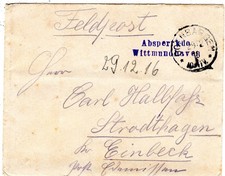 Feldpost
Absperrkdo.
Wittmundhaven
29.12.16
Herrn
Carl Halbfaß
Strodthagen
Einbeck